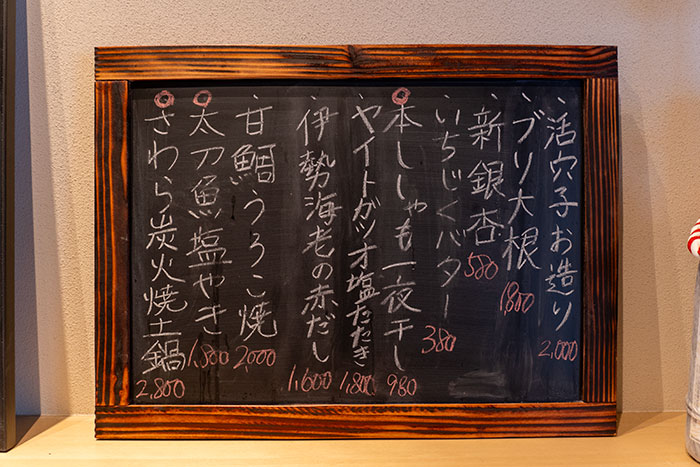 ・活穴子お造り 2,000
・ブリ大根 1800
・新銀杏 580
・いちじくバター 380
・本ししゃも一夜干し 980
・ヤイトガツオ塩たたき 1,800
・伊勢海老の赤だし 1,600
・甘鯛うろこ焼 2000
太刀魚塩やき 1,800
さわら炭火焼土鍋 2,800